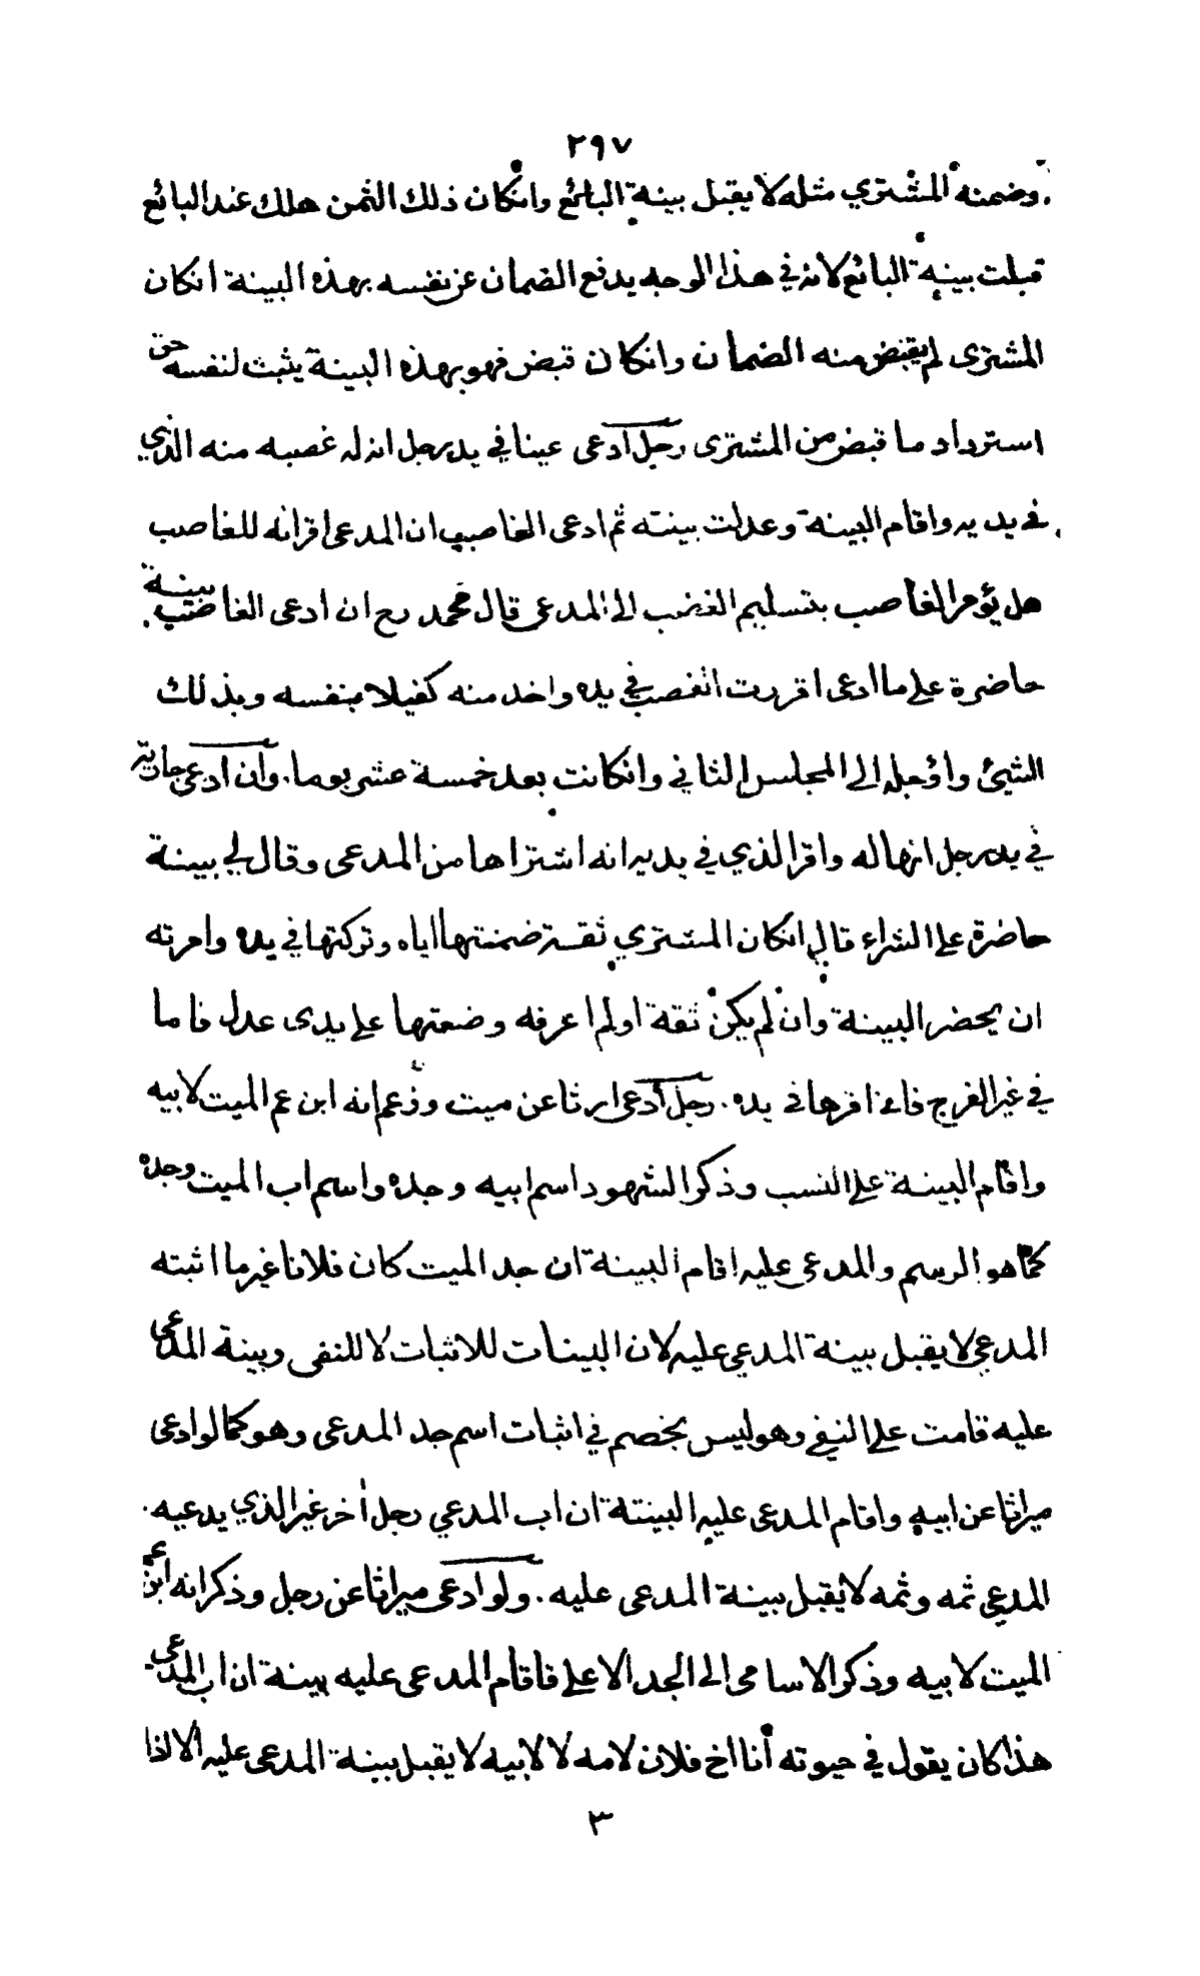 ٢٩٧
وضمنه المشتري مثله لا يقبل بينة البائع وانكان ذلك الثمن هلك عند البائع
قبلت بينة البائع لانه في هذا الوجه يدفع الضمان عن نفسه بهذه البينة انكان
المشترى لم يقبض منه الضمان وانكان قبض فهو بهذه البينة يثبت لنفسه حق
استرداد ما قبض من المشترى رجل ادعى عينا في يد رجل انه له غصبه منه الذي
في يديه واقام البينة وعدلت بينته ثم ادعى الغاصب ان المدعى اقر انه للغاصب
هل يؤمر الغاصب بتسليم الغصب الى المدعى قال محمد رح ان ادعى الغاصب بينة
حاضرة على ما ادعى اقررت الغصب في يده واخذ منه كفيلا بنفسه وبذلك
الشيئ واؤجله الى المجلس الثاني وانكانت بعد خمسة عشر يوما. وان ادعى جارية
في يد رجل انها له واقر الذي في يديه انه اشتراها من المدعى وقال لي بينة
حاضرة على الشراء قال انكان المشتري ثقة ضمنتها اياه وتركتها في يده وامرته
ان يحضر البينة وان لم يكن ثقة او لم اعرفه وضعتها على يدى عدل فاما
في غير الفرج فانى اقرها في يده. رجل ادعى ارثا عن ميت وزعم انه ابن عم الميت لابيه
واقام البينة على النسب وذكر الشهود اسم ابيه وجده واسم اب الميت وجده
كما هو الرسم والمدعى عليه اقام البينة ان جد الميت كان فلانا غير ما اثبته
المدعي لا يقبل بينة المدعي عليه لان البينات للاثبات لا للنفى وبينة المدعى
عليه قامت على النفي وهو ليس بخصم في اثبات اسم جد المدعى وهو كما لو ادعى
ميراثا عن ابيه واقام المدعى عليه البينة ان اب المدعي رجل أخر غير الذي يدعيه
المدعي ثمه وثمه لا يقبل بينة المدعى عليه. ولو ادعى ميراثا عن رجل وذكر انه ابن عم
الميت لابيه وذكر الاسامى الى الجد الاعلى فاقام المدعى عليه بينة ان اب المدعى
هذا كان يقول في حيوته أنا اخ فلان لامه لا لابيه لا يقبل بينة المدعى عليه الا اذا
٣